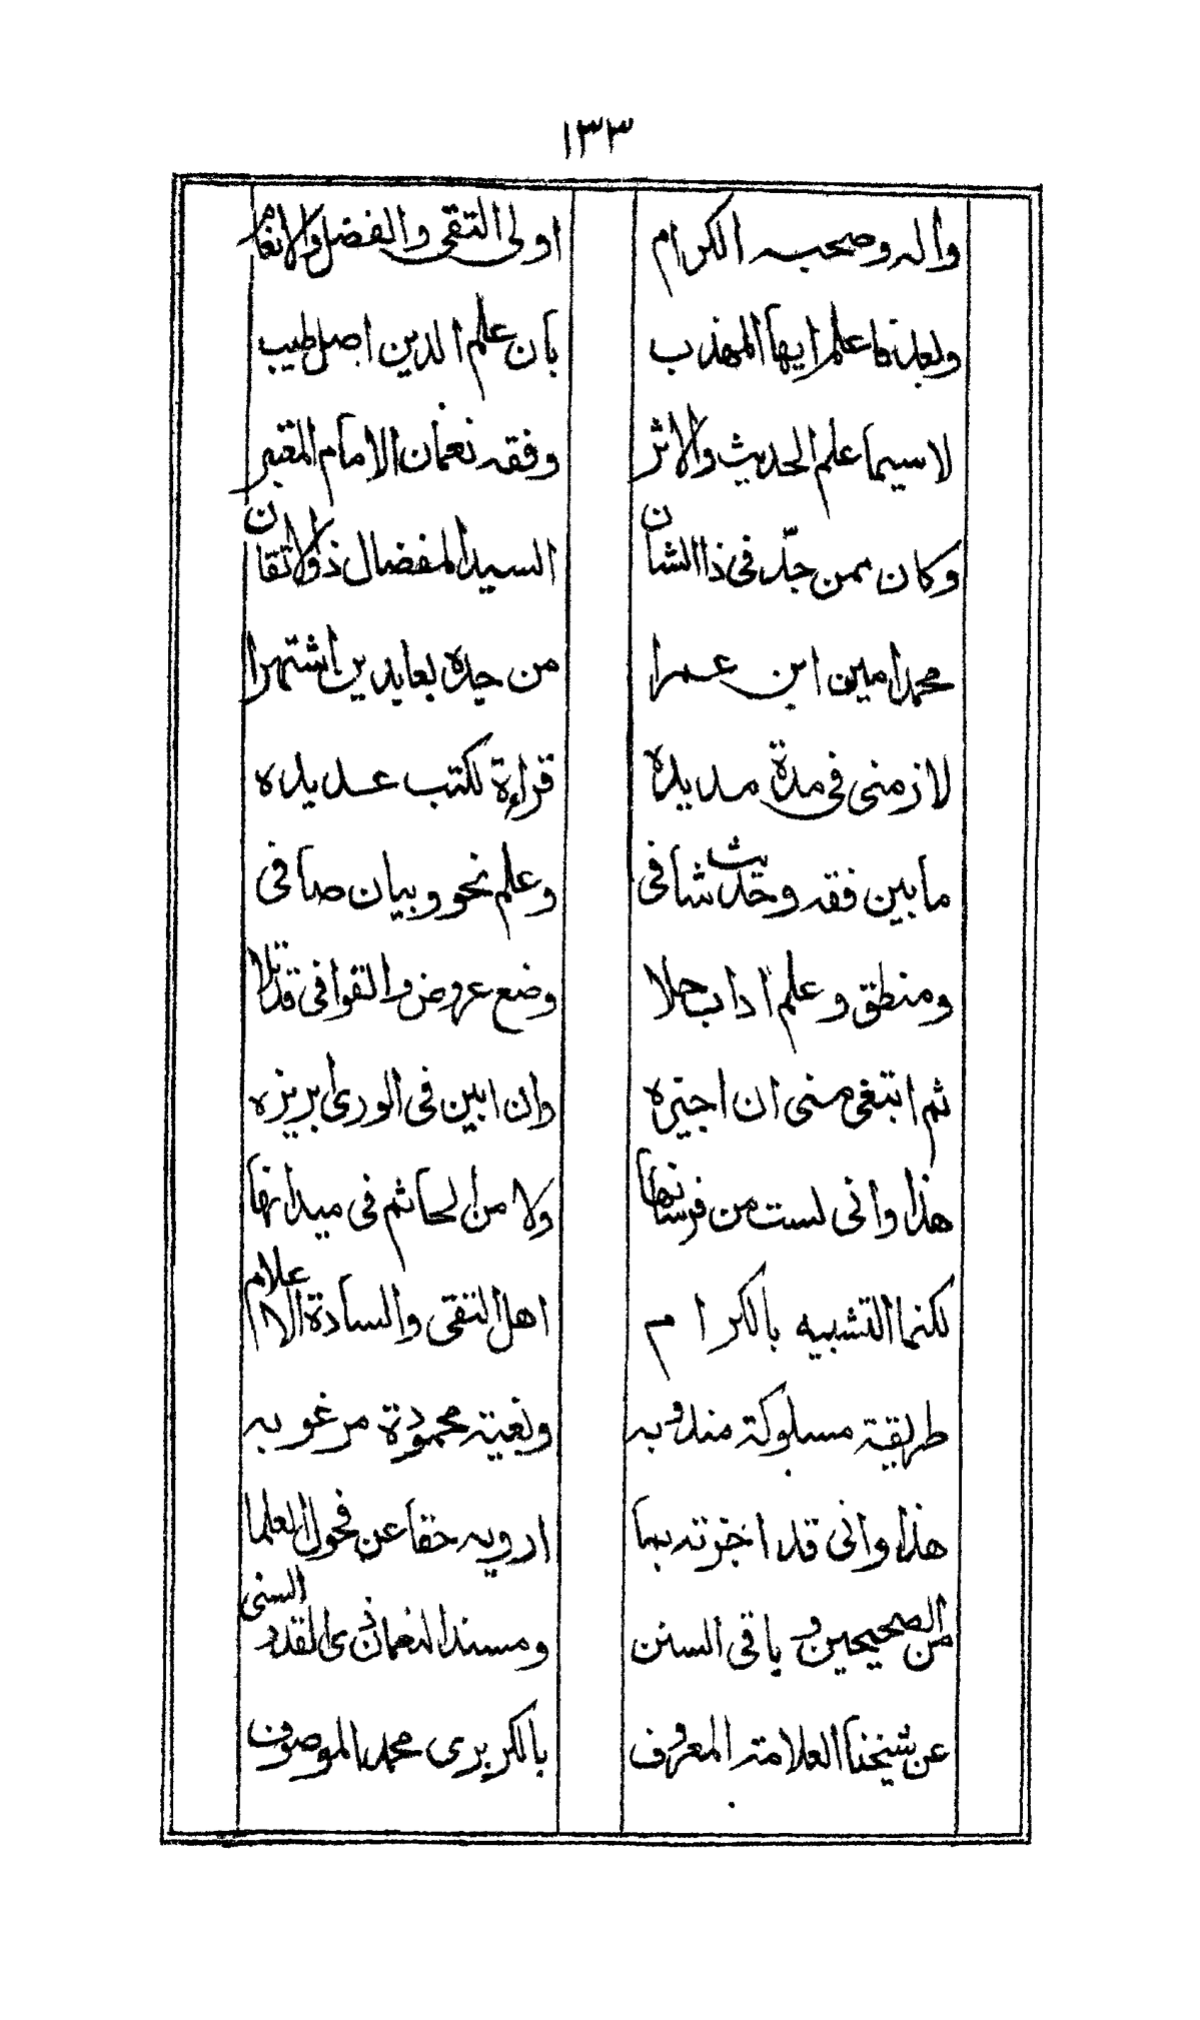 ١٣٣
واله وصحبه الكرام اولى التقى والفضل والانعام
وبعد فاعلم ايها المهذب بان علم الدين اصل طيب
لا سيما علم الحديث والاثر وفقه نعمان الامام المعتبر
وكان ممن جدّ فى ذا الشان السيد المفضال ذو الاتقان
محمد امين ابن عمرا من جده بعابدين اشتهرا
لازمنى فى مدة مديده قراءة لكتب عديده
ما بين فقه وحديث شافى وعلم نحو وبيان صافى
ومنطق وعلم اداب جلا وضع عروض والقوافى قد تلا
ثم ابتغى منى ان اجيزه وان ابين فى الورى ابريزه
هذا وانى لست من فرسانها ولا من الحائم فى ميدانها
لكنما التشبيه بالكرام اهل التقى والسادة الاعلام
طريقة مسلوكة مندوبه وبغية محمودة مرغوبه
هذا وانى قد اجزته بما ارويه حقا عن فحول العلما
من الصحيحين و باقى السنن ومسند النعمان ذى القدر السنى
عن شيخنا العلامة المعروف بالكزبرى محمد الموصوف